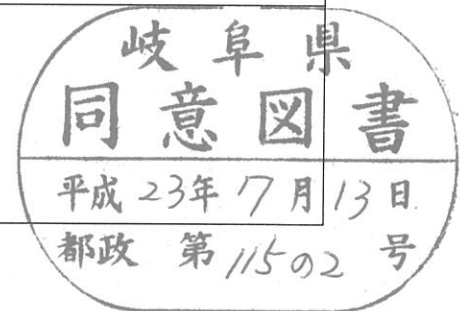 岐阜県
同意図書
平成23年7月13日
都政 第115の2号